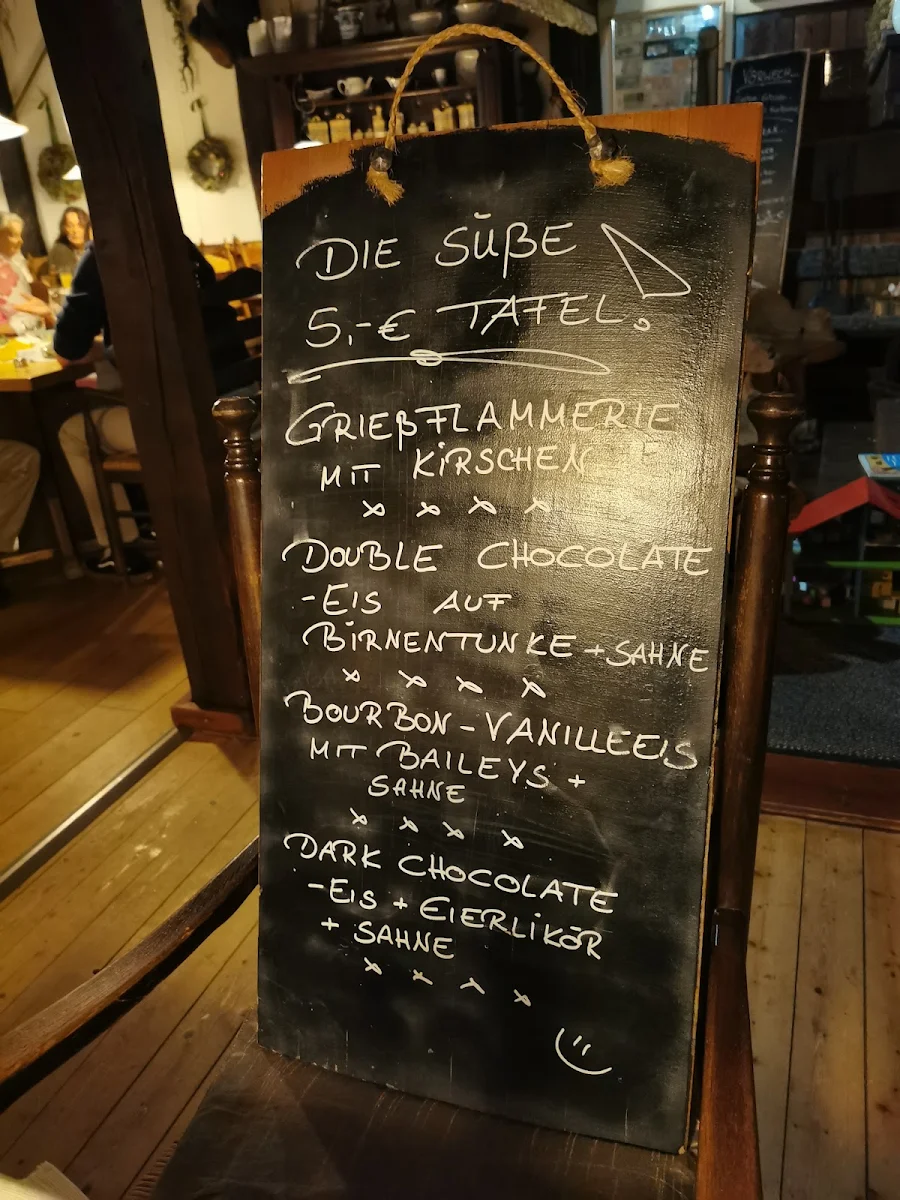 DIE SÜßE
5,-€ TAFEL!
GRIEßFLAMMERIE
MIT KIRSCHEN
x x x x
DOUBLE CHOCOLATE
-EIS AUF
BIRNENTUNKE + SAHNE
x x x x
BOURBON-VANILLEEIS
MIT BAILEYS +
SAHNE
x x x x
DARK CHOCOLATE
-EIS + EIERLIKÖR
+ SAHNE
x x x x
VORWEG